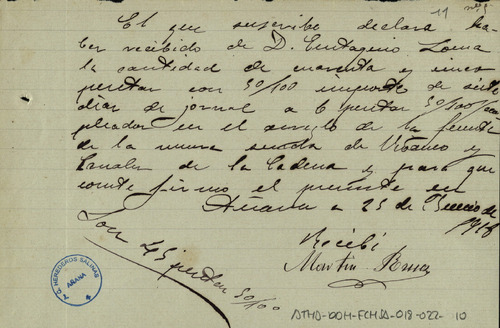 11
El que suscribe declara ha-
ber recibido de D. Eutogeno Loma
la cantidad de cuarenta y cinco
pesetas con 50/100 importe de siete
dias de jornal a 6 pesetas 50/100 em
pleados en el arreglo de la fuente
de la nueva senda de Ubanco y
Canales de la Cadena y para que
conste firmo el presente en
Añana a 25 de Enero de
1918
Son 45 pesetas 50/100
Recibí
Martin
G. HEREDEROS SALINAS
AÑANA
ATHA-DAH-FCHSA-018-022-10